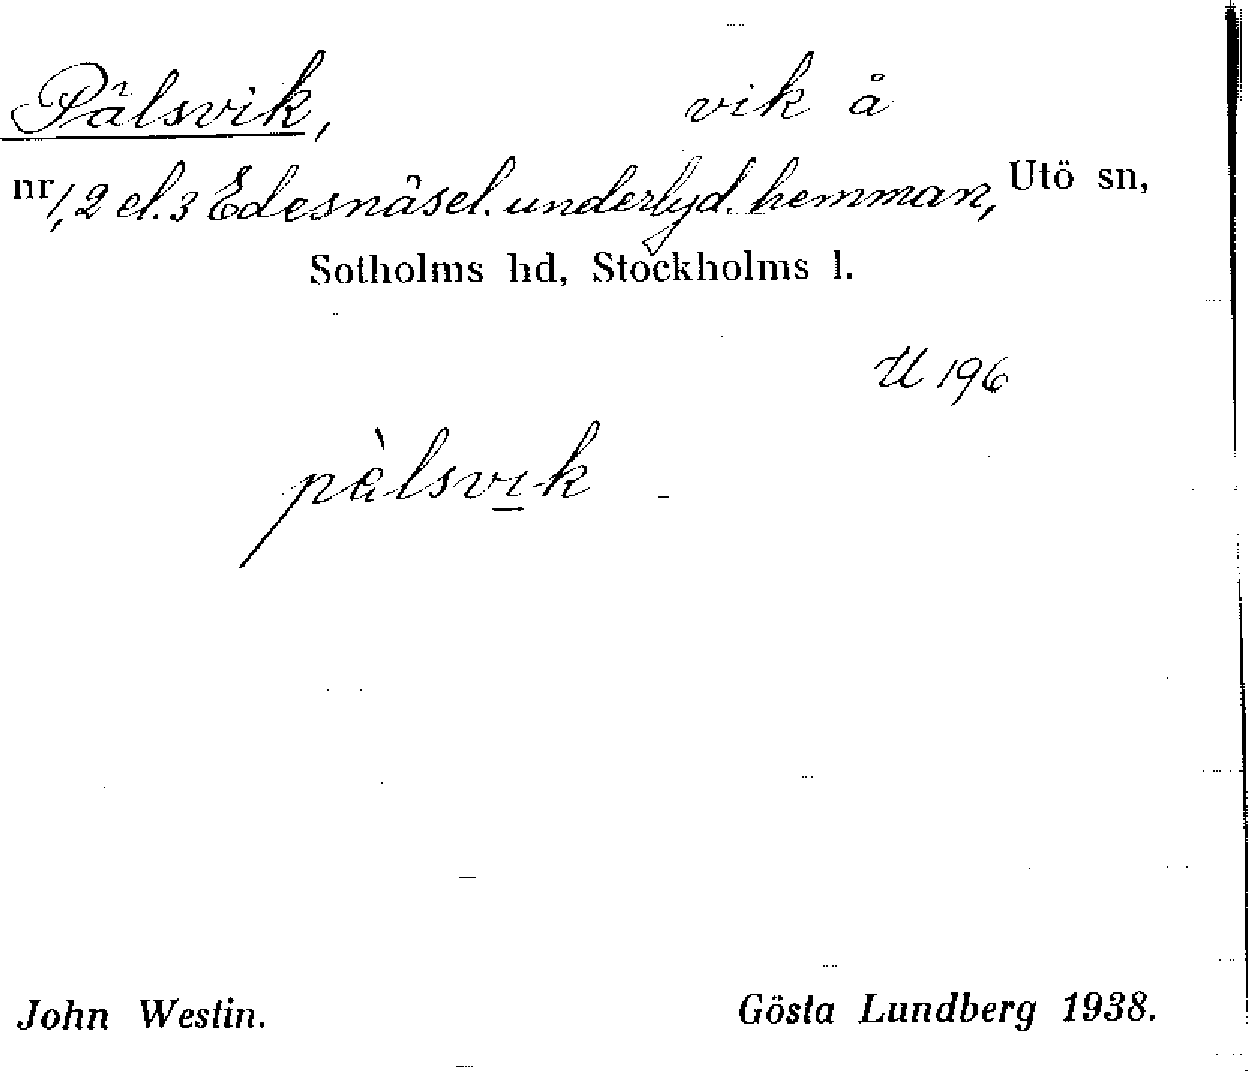 Pålsvik, vik å
nr 1, 2 el. 3 Edesnäs el. underlyd. hemman, Utö sn,
Sotholms hd, Stockholms l.
U 196
pàlsvik
John Westin. Gösta Lundberg 1938.